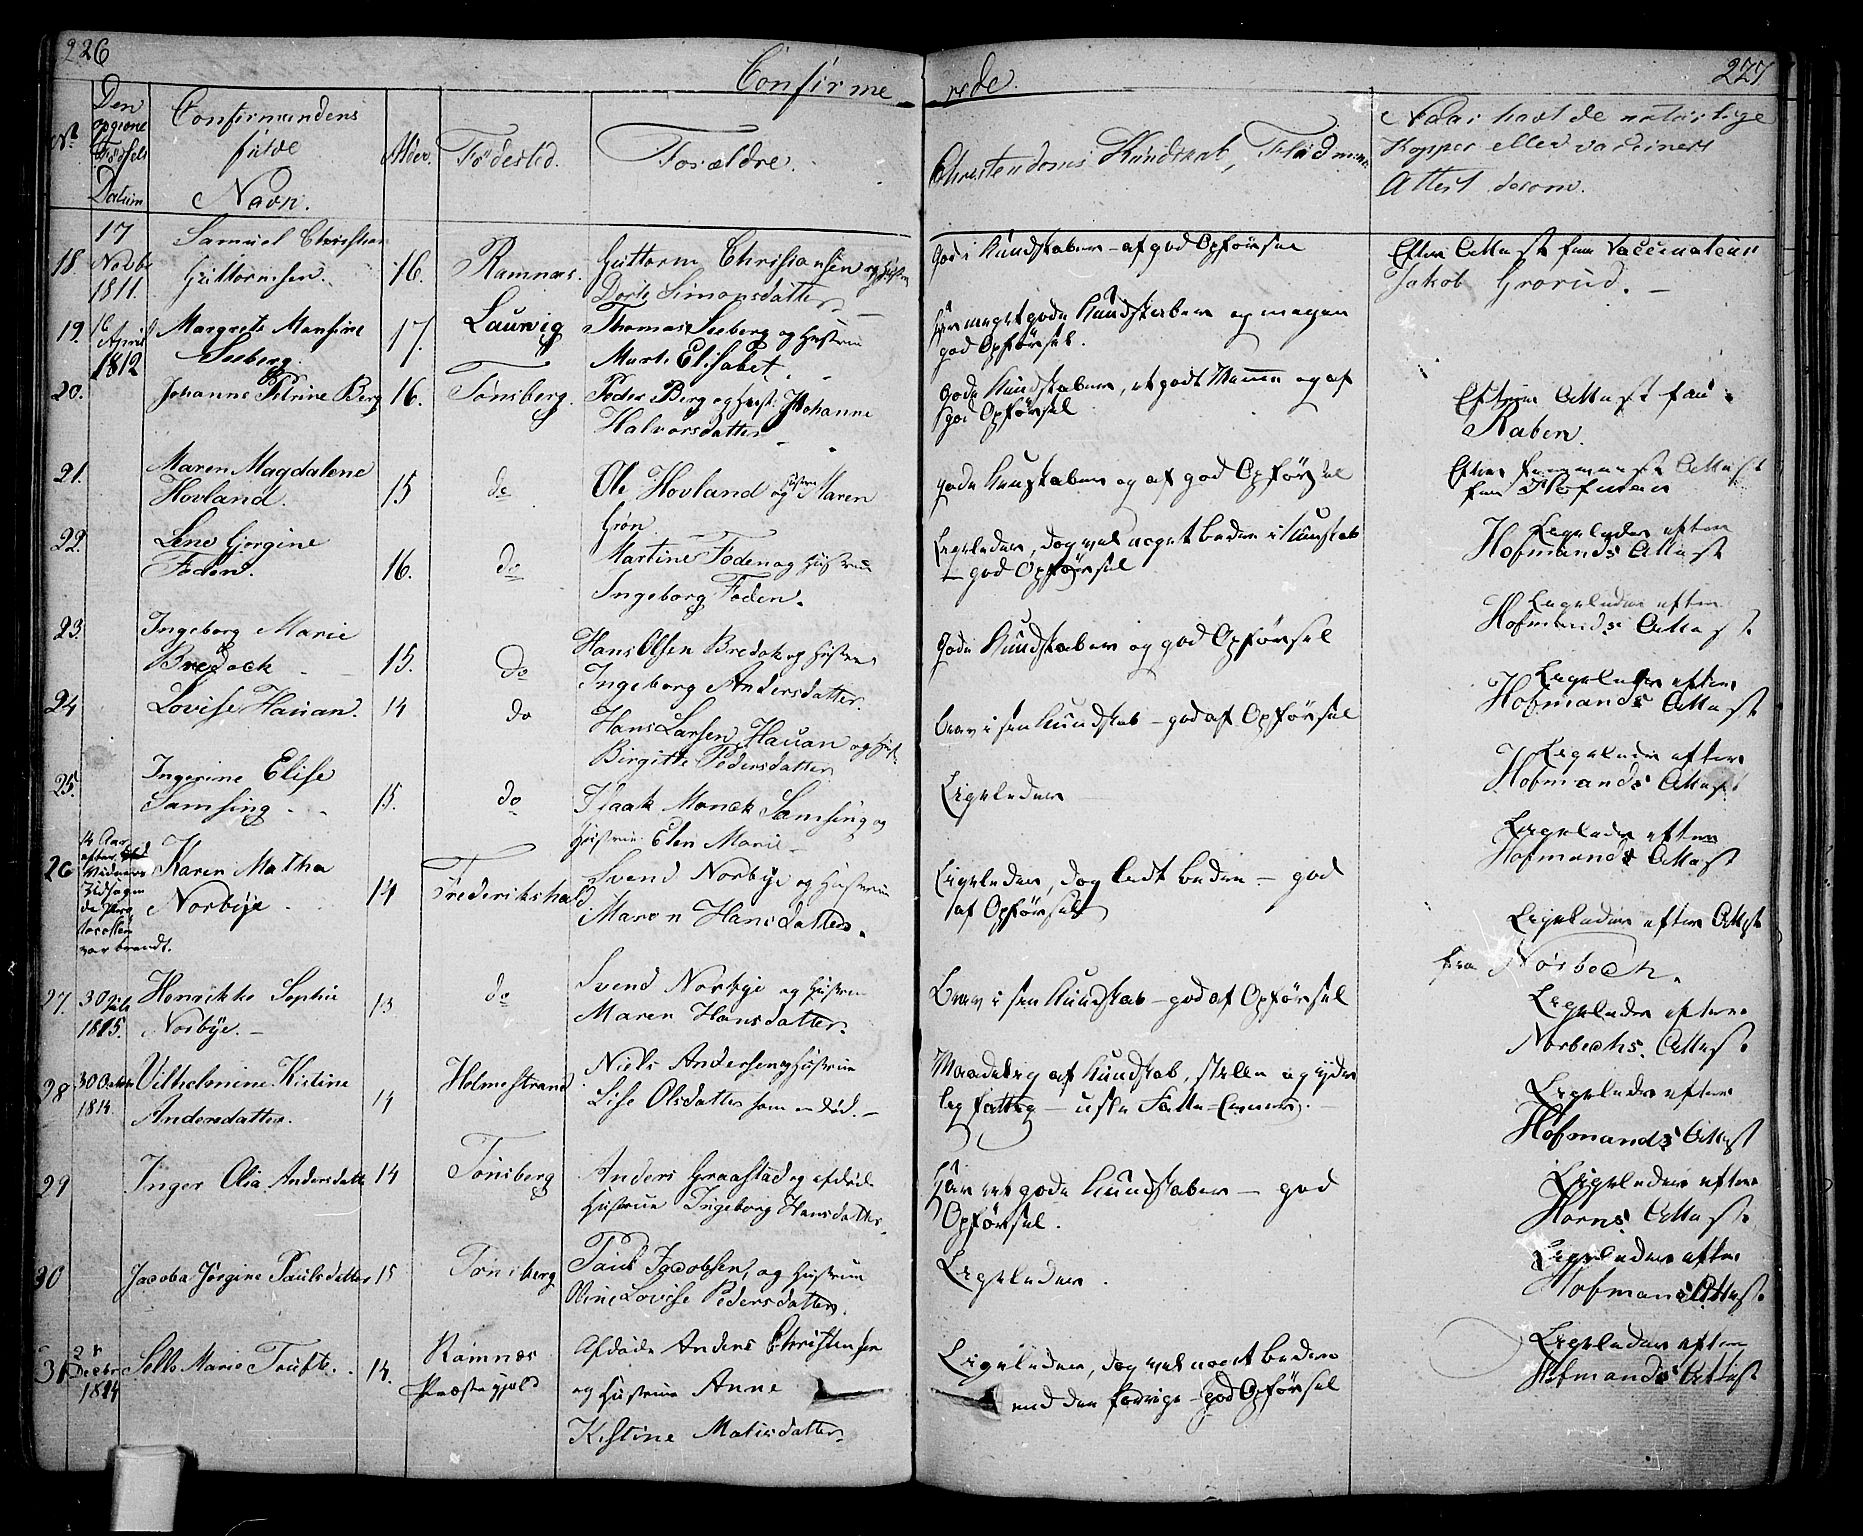 226
Confirme
rede.
227
Nº
Den
opgivne
Fødsels
Datum
Confirmandens
fulde
Navn.
Alder.
Fødested.
Forældre.
Christendoms Kundskab, Flid
Naar havt de naturlige
Kopper eller vaccineret
Attest derom.
18
17
Novbr
1811.
Samuel Christian
Guttormsen.
16.
Ramnæs.
Guttorm Christiansen og Hustru
Dorte Simonsdatter
god i Kundskaber - af god Opførsel
Efter Attest fra Vaccinateur
Jakob Grorud. -
19.
16
April
1812
Margrete Monsine
Seeberg.
17.
Laurvig
Thomas Seeberg og Hustrue
Marte Elisabet.
Har meget gode Kundskaber og megen
god Opførsel.
20.
Johanne Petrine Berg
16.
Tønsberg.
Peder Berg og Hust: Johanne
Halvorsdatter
gode Kundskaber, et godt Nemme og af
god Opførsel
Efter Attest fra
Raben.
21.
Maren Magdalene
Hovland.
15
do
Ole Hovland og Hustru Maren
Grøn
gode Kunskaber og af god Opførsel
Efter Attest
fra Hofman
22.
Lene Gorgine
Foden.
16.
do
Martine Foden og Hustrue
Ingeborg Foden.
Ligeleder, dog vel noget bedre i Kunskab
- god Opførsel
Ligeleder efter
Hofmands Attest
23.
Ingeborg Marie
Bredack -
15.
do
Hans Olsen Bredak og Hustrue
Ingeborg Andersdatter.
gode Kundskaber og god Opførsel
Ligeleder efter
Hofmands Attest
24
Lovise Hauan.
14
do
Hans Larsen Hauan og Hust.
Birgitte Pedersdatter
brav i sen Kundskab - god af Opførsel
Ligeleder efter
Hofmands Attest
25.
Ingerine Elise
Samsing. -
15.
do
Isaak Monck Samsing og
Hustrue Elen Marie -
Ligeleder
Ligeleder efter
Hofmands Attest
26
14 Aar
efter
Vidners
Udsagn
da Pro
tocollen
var brendt.
Karen Matha
Norbye.
14
Frederikshald
Svend Norbye og Hustrue
Maren Hansdatter.
Ligeleder, dog ledt bedre - god
af Opførsel
Ligeleder efter
Hofmands Attest
27.
30 Juli
1815.
Henrikke Sophie
Norbye. -
13
do
Svend Norbye og Hustrue
Maren Hansdatter.
Brav i sen Kundskab - god af Opførsel
Ligeleder efter Attest
fra Norbech.
28
30 Octbr
1814.
Vilhelmine Kistine
Andersdatter.
14
Holmestrand
Niels Andersen og Hustrue
Lise Olsdatter som er død. -
Maadelig af Kundskab, stille og
- usle Fatte-Evner. -
Ligeleder efter
Norbechs. Attest
29
Inger Olia Andersdatter
14
Tønsberg
Anders Graastad og afdøde
Hustrue Ingeborg Hansdatter.
Har ret gode Kundskaber - god
Opførsel.
Ligeleder efter
Hofmands Attest
30
Jacoba Jørgine Paulsdatter
15
Tønsberg
Paul Jacobsen, og Hustrue
Oline Lovise Pedersdatter.
Ligeleder.
Ligeleder efter
Horns Attest
Ligeleder efter
Hofmands Attest
31
2
Decbr
1814
Selle Marie Toufte.
14.
Ramnæs
Præstegjeld
Afdøde Anders Christensen
og Hustrue Anne
Kistine Matisdatter.
Ligeleder, dog vel noget bedre
end den forrige - god Opførsel
Ligeleder efter
Hofmands Attest